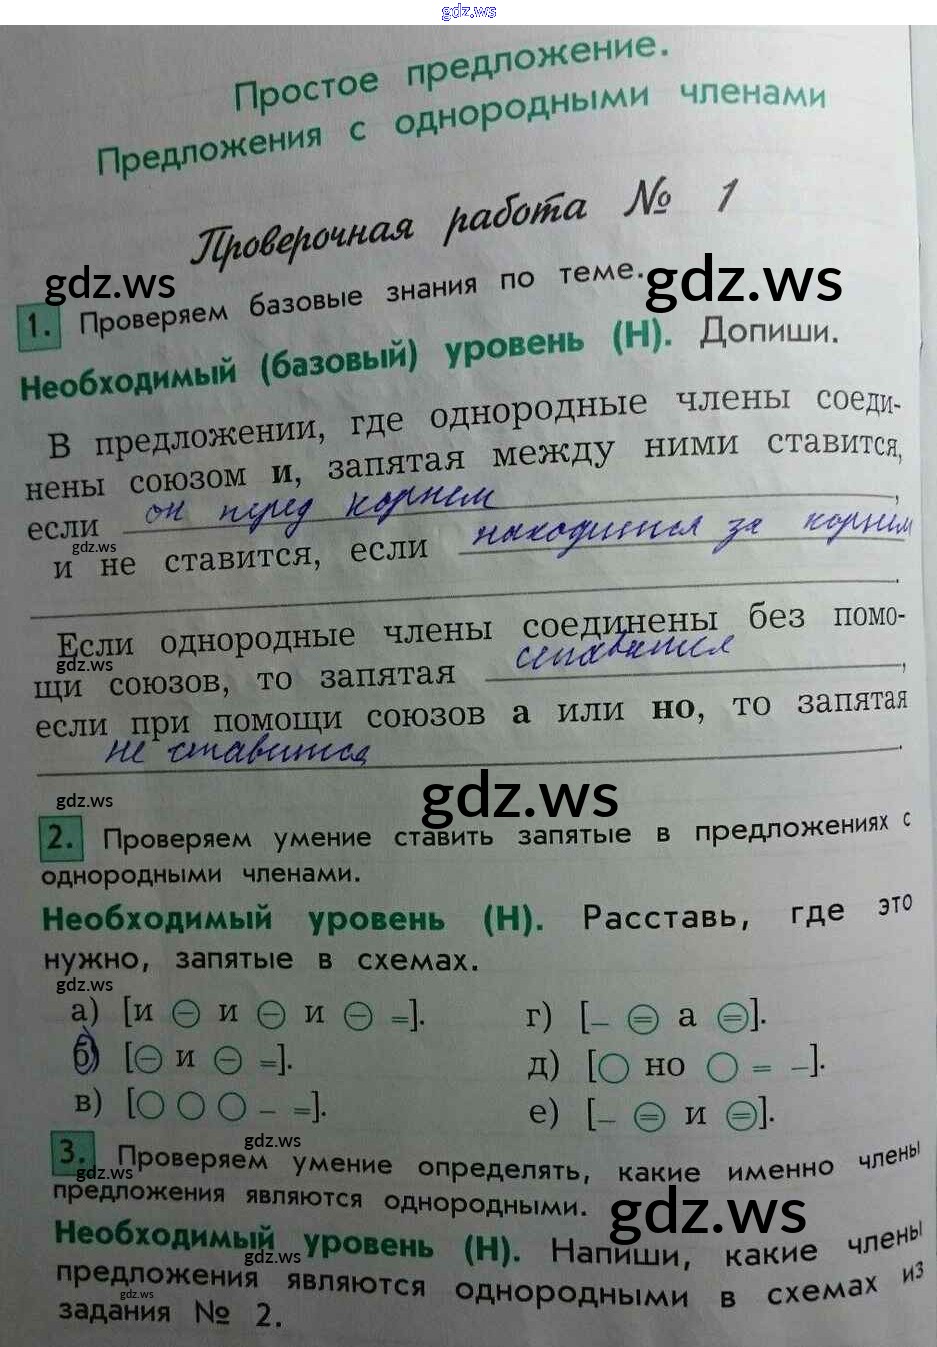 gdz.ws
Простое предложение.
Предложения с однородными членами
Проверочная работа № 1
gdz.ws
gdz.ws
1. Проверяем базовые знания по теме.
Необходимый (базовый) уровень (Н). Допиши.
В предложении, где однородные члены соеди-
нены союзом и, запятая между ними ставится,
если он перед корнем,
gdz.ws
и не ставится, если находится за корнем
.
Если однородные члены соединены без помо-
gdz.ws
щи союзов, то запятая ставится,
если при помощи союзов а или но, то запятая
не ставится.
gdz.ws
gdz.ws
2. Проверяем умение ставить запятые в предложениях с
однородными членами.
Необходимый уровень (Н). Расставь, где это
нужно, запятые в схемах.
gdz.ws
а) [и ⊖ и ⊖ и ⊖ =].
б) [⊖ и ⊖ =].
в) [○ ○ ○ – =].
г) [– ⊜ а ⊜].
д) [○ но ○ = –].
е) [– ⊜ и ⊜].
gdz.ws
3. Проверяем умение определять, какие именно члены
gdz.ws
предложения являются однородными.
gdz.ws
Необходимый уровень (Н). Напиши, какие члены
gdz.ws
предложения являются однородными в схемах из
gdz.ws
задания № 2.